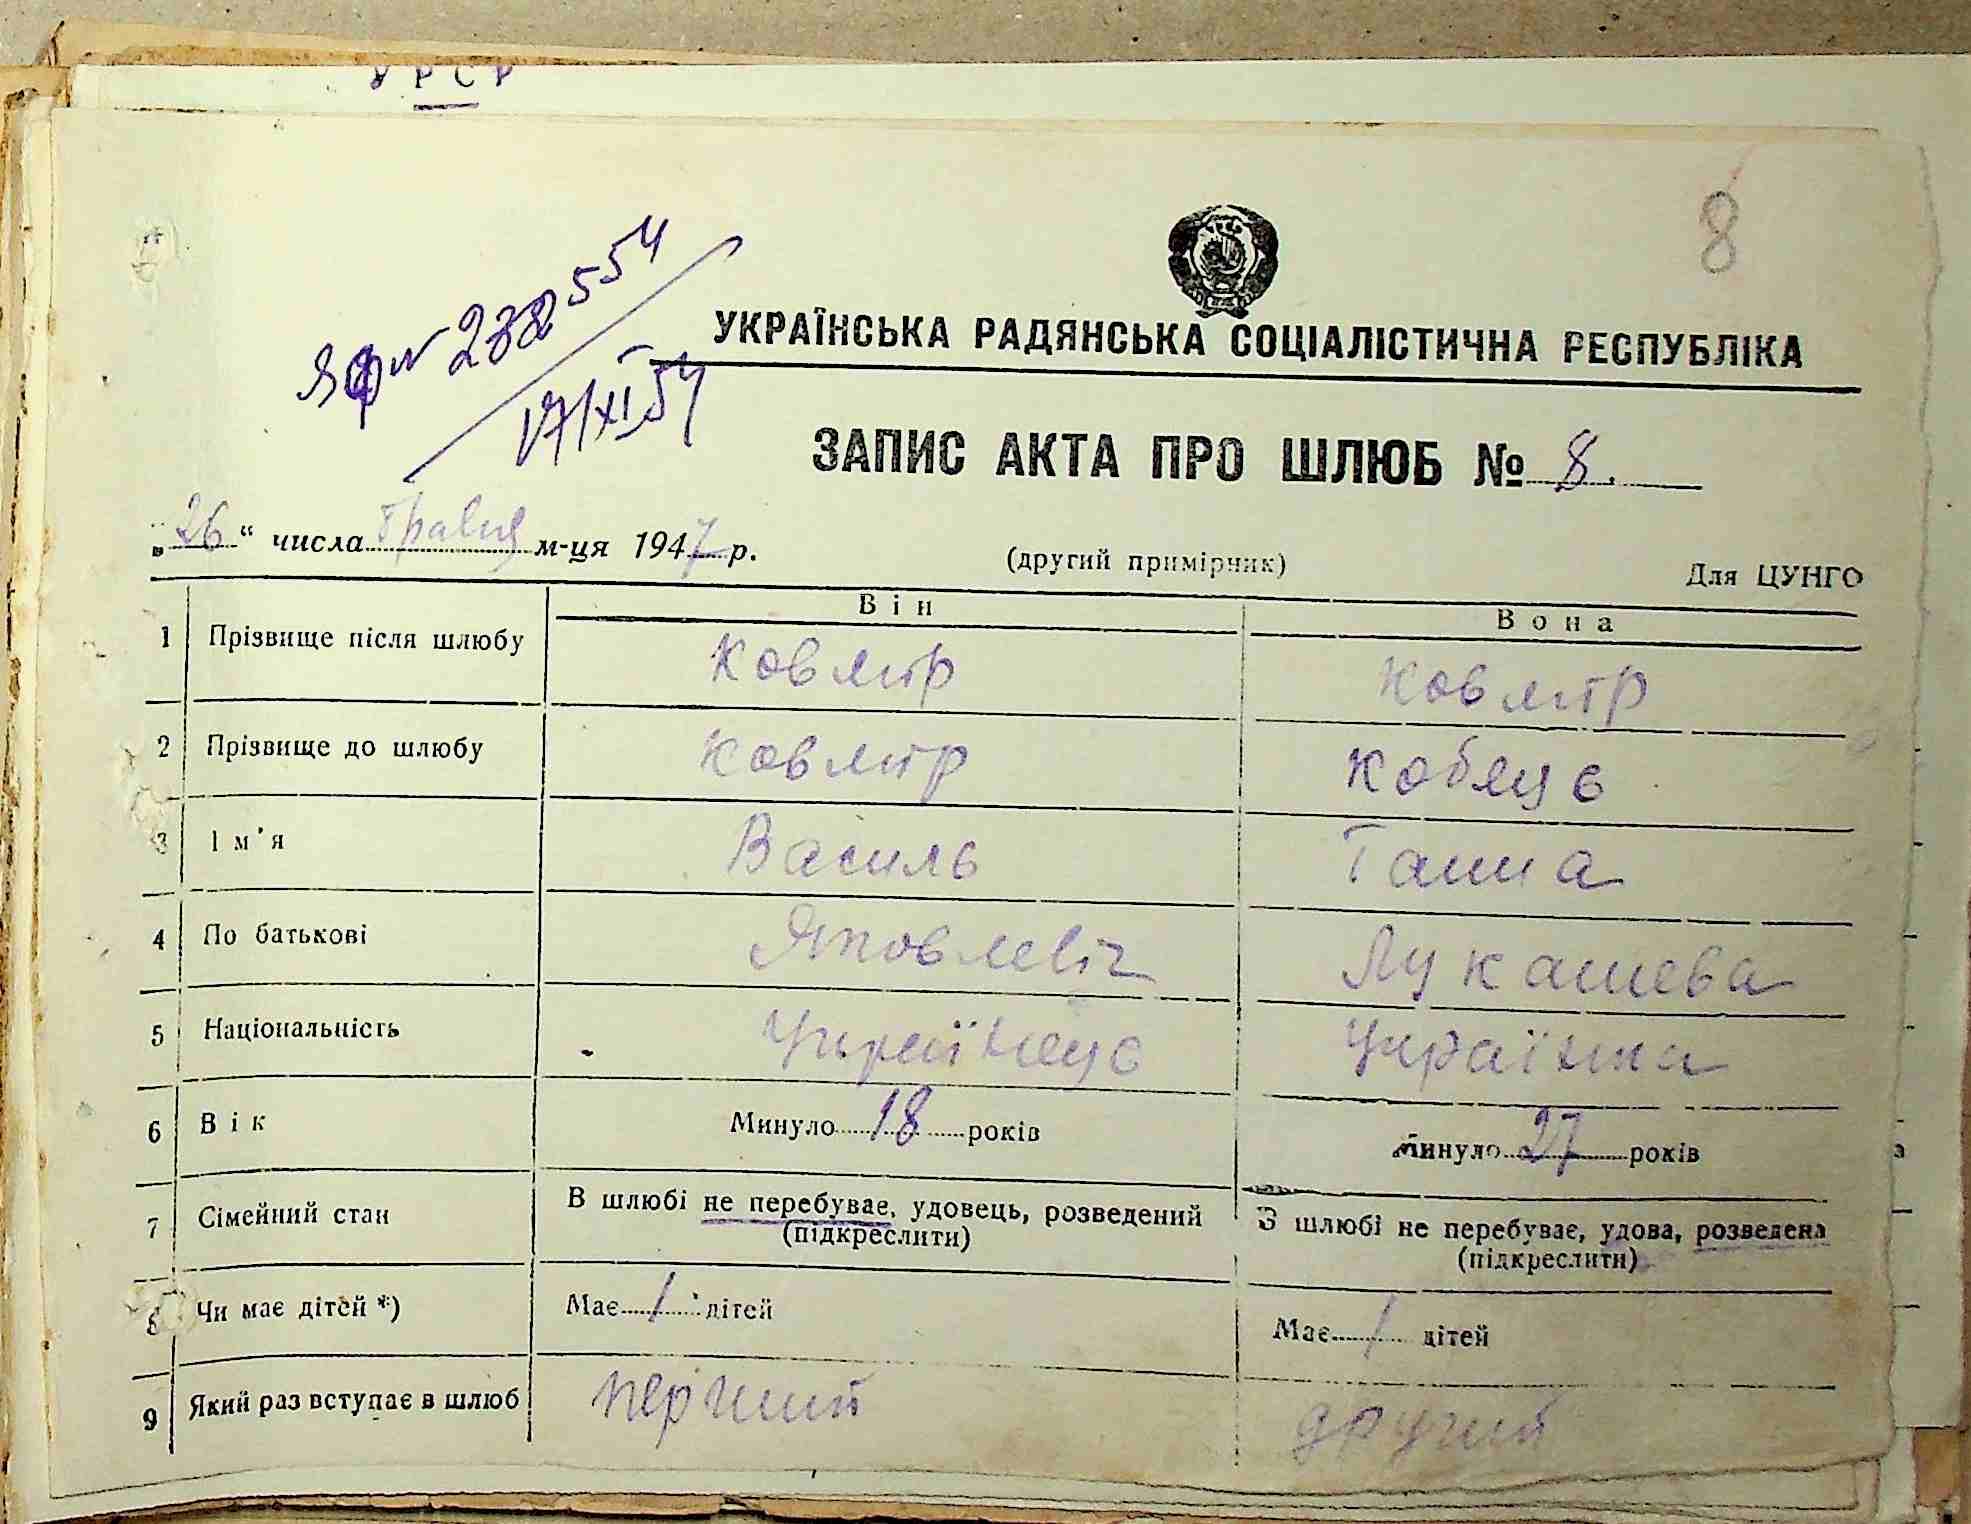 УРСР
8
ЯФ № 238554
17/XI.54
УКРАЇНСЬКА РАДЯНСЬКА СОЦІАЛІСТИЧНА РЕСПУБЛІКА
ЗАПИС АКТА ПРО ШЛЮБ № 8.
„26“ числа Травня м-ця 1947 р.
(другий примірник)
Для ЦУНГО
Він Вона
1 Прізвище після шлюбу Ковмір Ковмір
2 Прізвище до шлюбу Ковмір Кобяць
3 Ім'я Василь Ганна
4 По батькові Яковлевіч Лукашева
5 Національність Українець Українка
6 Вік Минуло 18 років Минуло 27 років
7 Сімейний стан В шлюбі не перебуває, удовець, розведений В шлюбі не перебуває, удова, розведена
(підкреслити) (підкреслити)
8 Чи має дітей *) Має / дітей Має / дітей
9 Який раз вступає в шлюб перший другий